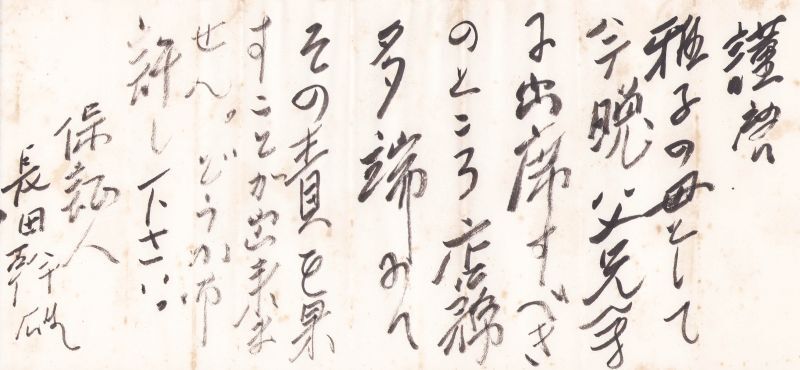 謹啓
雅子の母として
今晩父兄会
に出席すべき
のところ店務
多端にて
その責を果
すことが出来ま
せん。どうか御
許し下さい。
保証人
長田